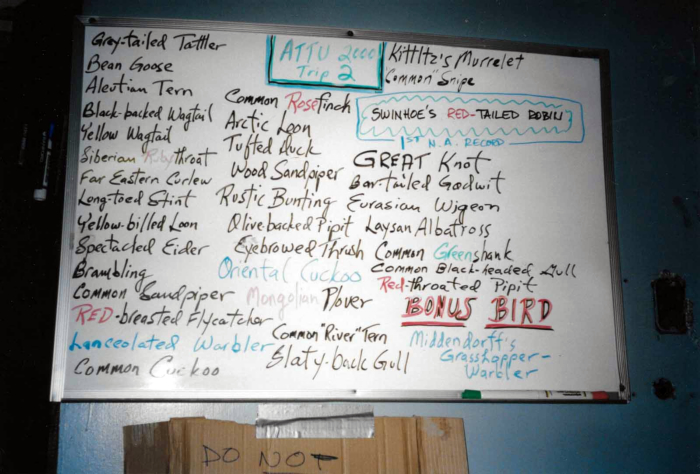 Gray-tailed Tattler
Bean Goose
Aleutian Tern
Black-backed Wagtail
Yellow Wagtail
Siberian Rubythroat
Far Eastern Curlew
Long-toed Stint
Yellow-billed Loon
Spectacled Eider
Brambling
Common Sandpiper
RED-breasted Flycatcher
Lanceolated Warbler
Common Cuckoo
ATTU 2000
Trip 2
Common Rosefinch
Arctic Loon
Tufted Duck
Wood Sandpiper
Rustic Bunting
Olive-backed Pipit
Eyebrowed Thrush
Oriental Cuckoo
Mongolian Plover
Common "River" Tern
Slaty-back Gull
Kittlitz's Murrelet
"Common" Snipe
SWINHOE'S RED-TAILED ROBIN
1ST N.A. RECORD
GREAT Knot
Bar-tailed Godwit
Eurasian Wigeon
Laysan Albatross
Common Greenshank
Common Black-headed Gull
Red-throated Pipit
BONUS BIRD
Middendorff's
Grasshopper-
Warbler
DO NOT